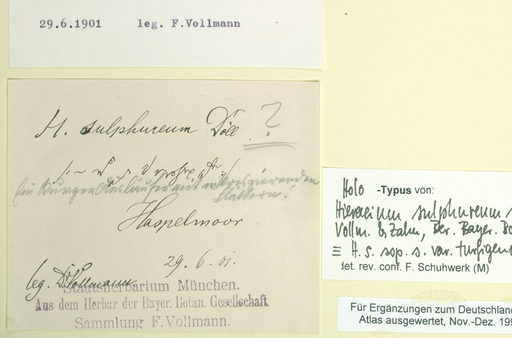 29.6.1901 leg. F.Vollmann
H. sulphureum Döll ?
Ein kurzer Ausläufer mit
Haspelmoor.
29.6.01.
leg. Dr Vollmann
Staatsherbarium München.
Aus dem Herbar der Bayer. Botan. Gesellschaft.
Sammlung F.Vollmann.
Holo -Typus von:
Hieracium sulphureum
Vollm. & Zahn, Ber. Bayer. Bo
≡ H. s. ssp. s. var. 
det. rev. conf. F. Schuhwerk (M)
Für Ergänzungen zum Deutschland
Atlas ausgewertet, Nov.-Dez. 199